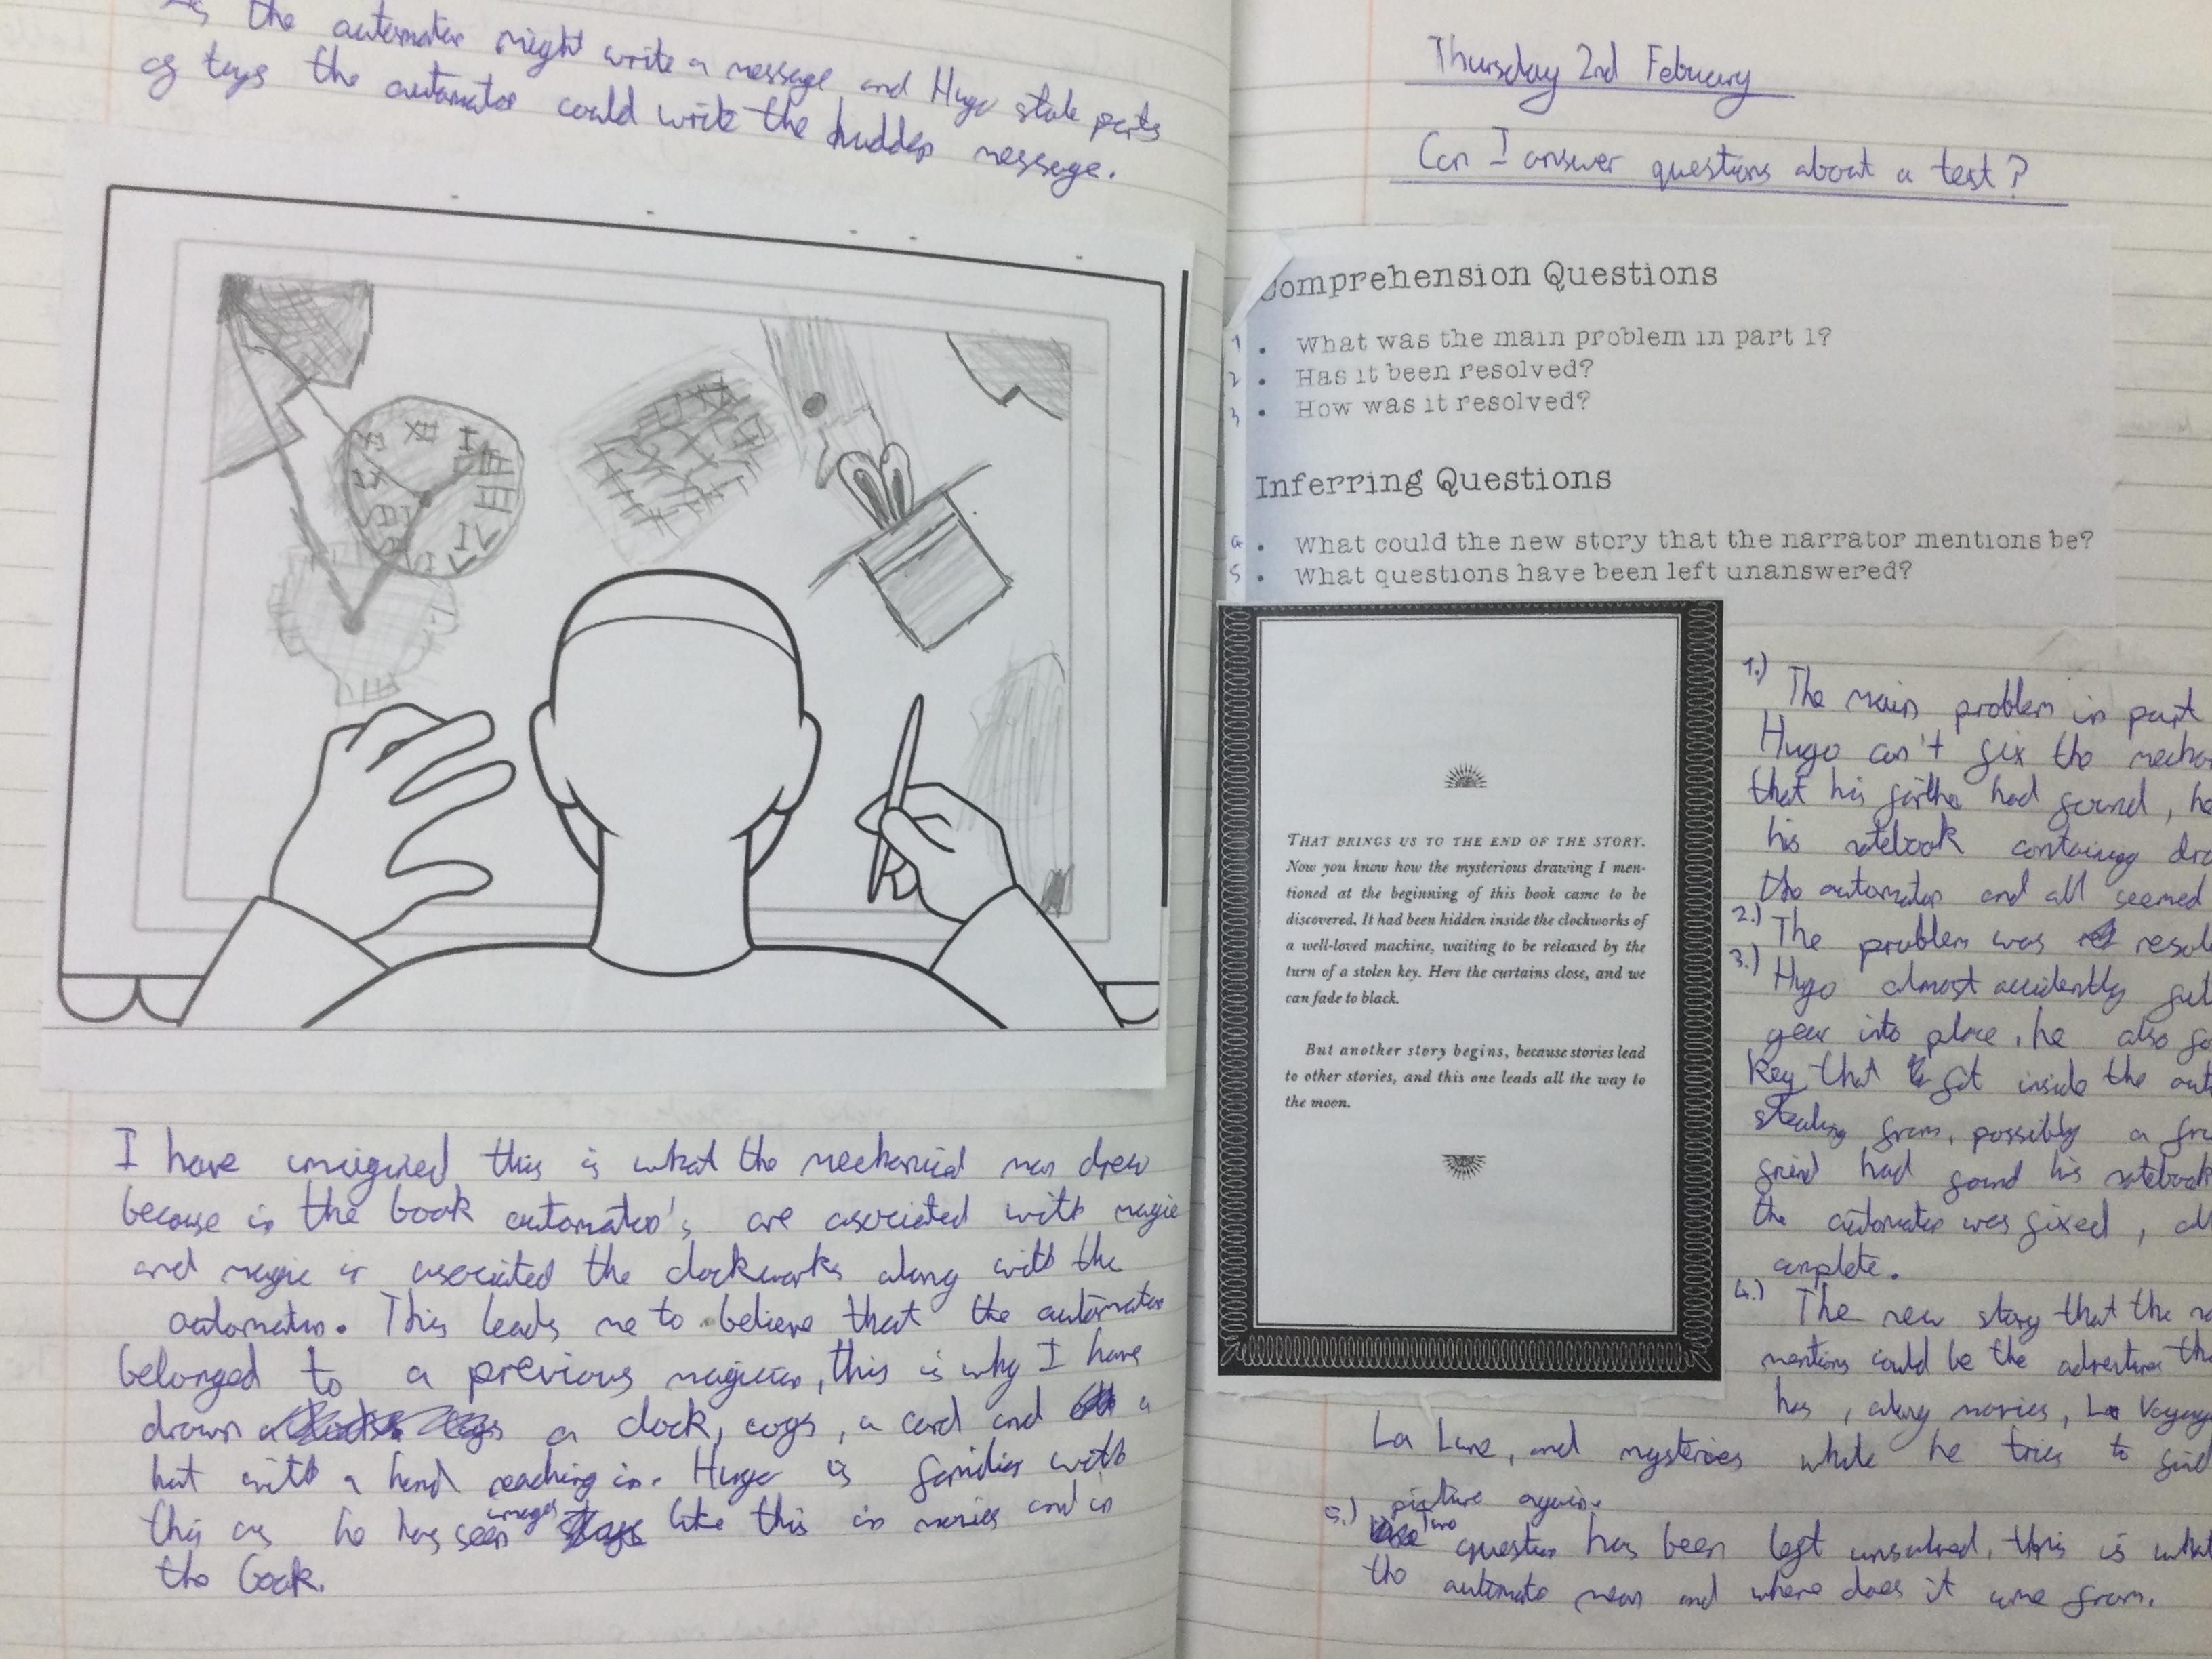 the automaton might write a message and Hugo stole parts
of toys the automaton could write the hidden message.
I have imagined this is what the mechanical man drew
because in the book automaton's are asociated with magic
and magic is asociated the clockworks along with the
automaton. This leads me to believe that the automaton
belonged to a previous magician, this is why I have
drawn a clock, cogs, a card and a
hat with a hand reaching in. Hugo is familiar with
this as he has seen images like this in movies and in
the book.
Thursday 2nd Febuary
Can I answer questions about a text?
Comprehension Questions
1 • What was the main problem in part 1?
2 • Has it been resolved?
3 • How was it resolved?
Inferring Questions
4 • What could the new story that the narrator mentions be?
5 • What questions have been left unanswered?
THAT BRINGS US TO THE END OF THE STORY.
Now you know how the mysterious drawing I men-
tioned at the beginning of this book came to be
discovered. It had been hidden inside the clockworks of
a well-loved machine, waiting to be released by the
turn of a stolen key. Here the curtains close, and we
can fade to black.
But another story begins, because stories lead
to other stories, and this one leads all the way to
the moon.
1.) The main problem in part
Hugo can't fix the
that his had found,
his notebook containing
the automaton and all seemed
2.) The problem was
3.) Hugo almost accidently
gear into place, he also
key that fit inside the
stealing from, possibly a
had found his notebook
the automaton was fixed,
complete.
4.) The new story that the
mentions could be the adventures
has, along movies, La
La Lune, and mysteries while he tries to
picture again.
5.) Two question has been left unsolved, this is what
the automato mean and where does it come from.